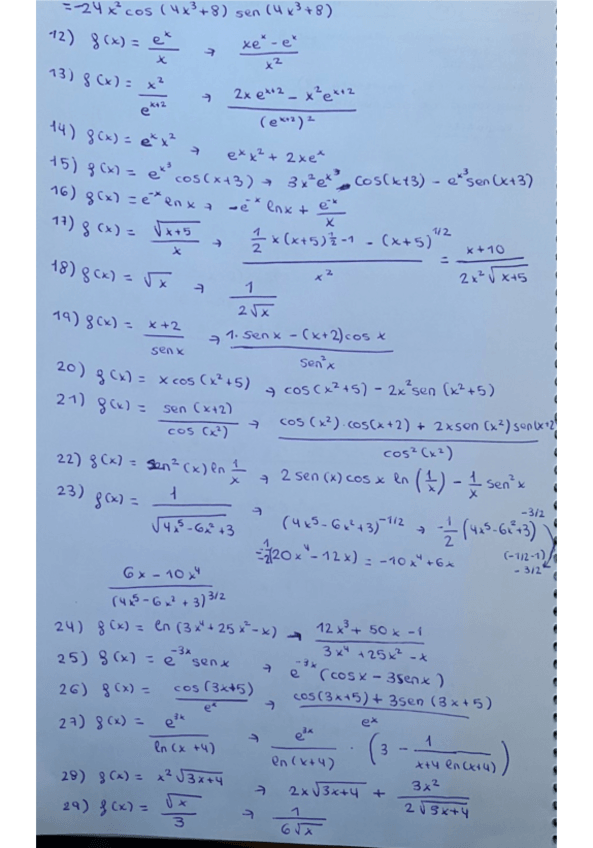 = -24x² cos (4x³+8) sen (4x³+8)
12) f(x) = e^x / x → (xe^x - e^x) / x²
13) f(x) = x² / e^(x+2) → (2x e^(x+2) - x² e^(x+2)) / (e^(x+2))²
14) f(x) = e^x x² → e^x x² + 2xe^x
15) f(x) = e^(x³) cos(x+3) → 3x² e^(x³) cos(x+3) - e^(x³) sen(x+3)
16) f(x) = e^(-x) ln x → -e^(-x) ln x + e^(-x) / x
17) f(x) = √(x+5) / x → (1/2 x (x+5)^(1/2 - 1) - (x+5)^(1/2)) / x² = (x+10) / (2x² √(x+5))
18) f(x) = √x → 1 / (2√x)
19) f(x) = (x+2) / sen x → (1. sen x - (x+2) cos x) / sen² x
20) f(x) = x cos (x²+5) → cos (x²+5) - 2x² sen (x²+5)
21) f(x) = sen (x+2) / cos (x²) → (cos (x²) . cos(x+2) + 2x sen (x²) sen(x+2) / cos² (x²)
22) f(x) = sen² (x) ln 1/x → 2 sen (x) cos x ln (1/x) - 1/x sen² x
23) f(x) = 1 / √(4x⁵-6x²+3) → (4x⁵-6x²+3)^(-1/2) → -1/2 (4x⁵-6x²+3)^(-3/2)
= -1/2 (20x⁴-12x) = -10x⁴+6x
(-1/2-1)
-3/2
(6x - 10x⁴) / (4x⁵-6x²+3)^(3/2)
24) f(x) = ln (3x⁴+25x²-x) → (12x³+50x-1) / (3x⁴+25x²-x)
25) f(x) = e^(-3x) sen x → e^(-3x) (cos x - 3sen x)
26) f(x) = cos (3x+5) / e^x → (cos(3x+5) + 3sen (3x+5)) / e^x
27) f(x) = e^(3x) / ln (x+4) → e^(3x) / ln (x+4) · (3 - 1 / (x+4 ln(x+4)))
28) f(x) = x² √(3x+4) → 2x √(3x+4) + 3x² / (2√(3x+4))
29) f(x) = √x / 3 → 1 / (6√x)